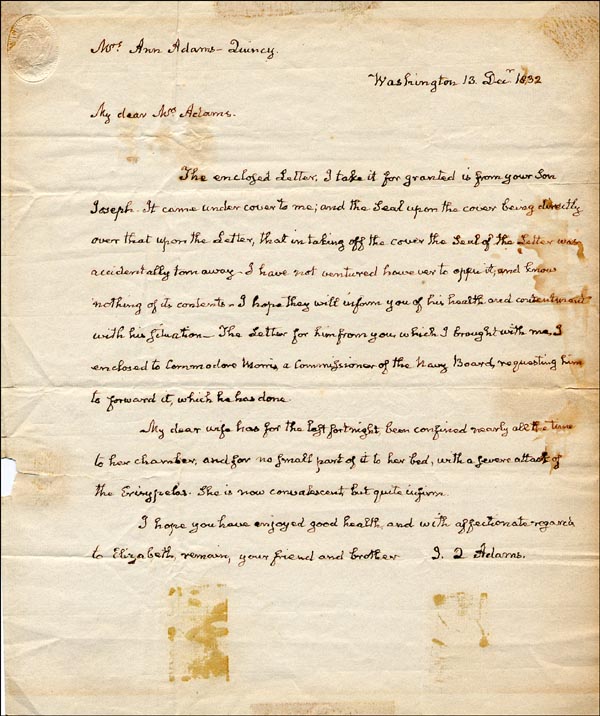 Mrs Ann Adams - Quincy.
Washington 13. Decr 1832
My dear Mrs Adams.
The enclosed Letter, I take it for granted is from your Son
Joseph - It came under cover to me; and the Seal upon the cover being directly
over that upon the Letter, that in taking off the cover the Seal of the Letter was
accidentally torn away - I have not ventured however to open it, and know
nothing of its contents - I hope they will inform you of his health and contentment
with his situation - The Letter for him from you, which I brought with me, I
enclosed to Commodore Morris, a Commissioner of the Navy Board, requesting him
to forward it, which he has done.
My dear wife has for the last fortnight, been confined nearly all the time
to her chamber, and for no small part of it to her bed, with a severe attack of
the Erisypelas. She is now convalescent but quite infirm.
I hope you have enjoyed good health, and with affectionate regards
to Elizabeth, remain, your friend and brother J. Q. Adams.